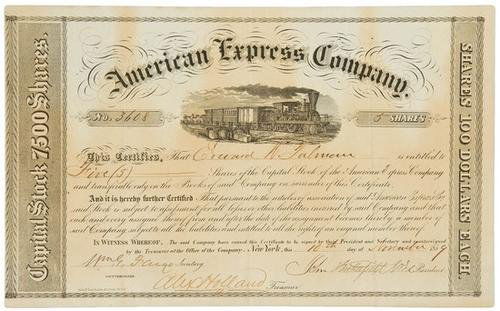 American Express Company.
No. 3608
5 SHARES
Capital Stock 7500 Shares.
SHARES 100 DOLLARS EACH.
This Certifies, That Edward W. is entitled to
Five (5) Shares of the Capital Stock of the American Express Company
and transferable only on the Books of said Company on surrender of this Certificate.
And it is hereby further Certified That pursuant to the articles of association of said American Express Co.
said Stock is subject to assessment for all losses or other liabilities incurred by said Company and that
each and every assignee thereof from and after the date of the assignment becomes thereby a member of
said Company subject to all the liabilities and entitled to all the rights of an original member thereof.
In Witness Whereof, The said Company have caused this Certificate to be signed by their President and Secretary and countersigned
by the Treasurer at the Office of the Company, New York, this 10th day of November 1859
Wm G Fargo Secretary
John Butterfield President
COUNTERSIGNED
Alex Holland Treasurer